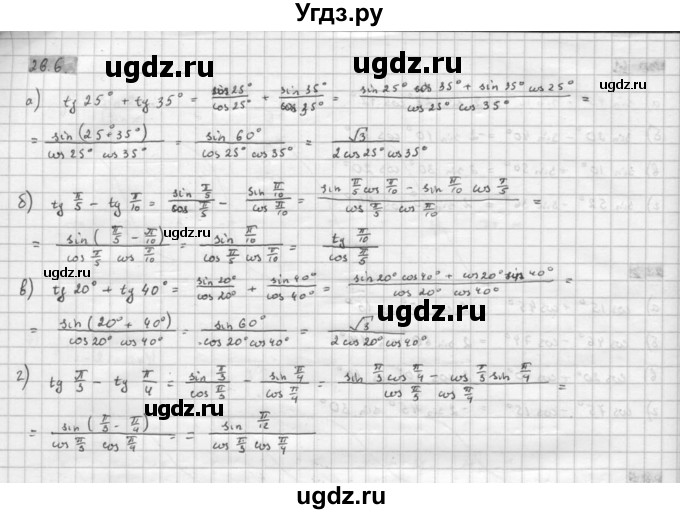 Угдз.ру
28.6.
uqdz.ru uqdz.ru
а) tg 25° + tg 35° = sin 25°/cos 25° + sin 35°/cos 35° = (sin 25° cos 35° + sin 35° cos 25°)/(cos 25° cos 35°) =
= sin(25°+35°)/(cos 25° cos 35°) = sin 60°/(cos 25° cos 35°) = √3/(2 cos 25° cos 35°)
uqdz.ru
б) tg π/5 - tg π/10 = sin π/5/cos π/5 - sin π/10/cos π/10 = (sin π/5 cos π/10 - sin π/10 cos π/5)/(cos π/5 cos π/10) =
uqdz.ru
= sin(π/5 - π/10)/(cos π/5 cos π/10) = sin π/10/(cos π/5 cos π/10) = tg π/10/cos π/5
uqdz.ru
в) tg 20° + tg 40° = sin 20°/cos 20° + sin 40°/cos 40° = (sin 20° cos 40° + cos 20° sin 40°)/(cos 20° cos 40°) =
uqdz.ru
= sin(20° + 40°)/(cos 20° cos 40°) = sin 60°/(cos 20° cos 40°) = √3/(2 cos 20° cos 40°)
г) tg π/3 - tg π/4 = sin π/3/cos π/3 - sin π/4/cos π/4 = (sin π/3 cos π/4 - cos π/3 sin π/4)/(cos π/3 cos π/4) =
= sin(π/3 - π/4)/(cos π/3 cos π/4) = sin π/12/(cos π/3 cos π/4)
uqdz.ru
uqdz.ru uqdz.ru